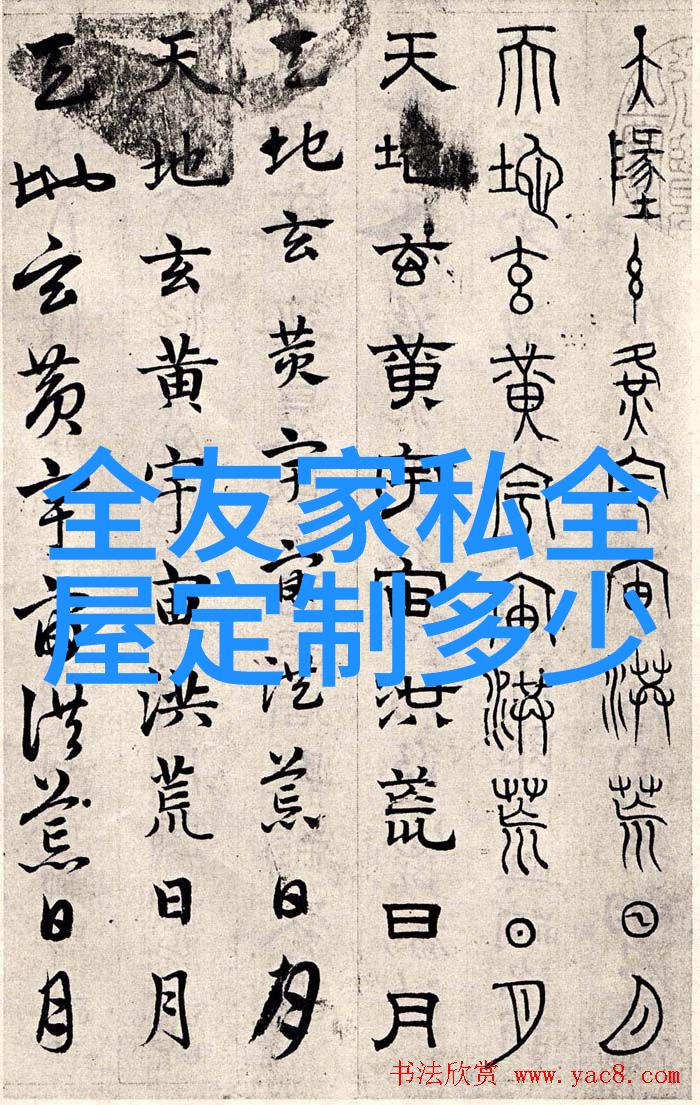 天地玄黄宇宙洪荒日月
天地玄黄宇宙洪荒日月
天地玄黄宇宙洪荒日月
天地玄黄宇宙洪荒日月
天地玄黄宇宙洪荒日月
天地玄黄宇宙洪荒日月
全友家私全
屋定制多少
书法欣赏 www.yac8.com